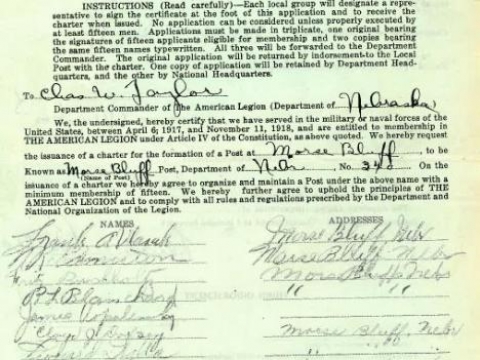 INSTRUCTIONS (Read carefully)—Each local group will designate a repre-
sentative to sign the certificate at the foot of this application and to receive the
charter when issued. No application can be considered unless properly executed by
at least fifteen men. Applications must be made in triplicate, one original bearing
the signatures of fifteen applicants eligible for membership and two copies bearing
the same fifteen names typewritten. All three will be forwarded to the Department
Commander. The original application will be returned by indorsement to the Local
Post with the charter. One copy of application will be retained by Department Head-
quarters, and the other by National Headquarters.
To Chas. W. Taylor
Department Commander of the American Legion (Department of Nebraska)
We, the undersigned, hereby certify that we have served in the military or naval forces of the
United States, between April 6, 1917, and November 11, 1918, and are entitled to membership in
THE AMERICAN LEGION under Article IV of the Constitution, as above quoted. We hereby request
the issuance of a charter for the formation of a Post at Morse Bluff, to be
Known as Morse Bluff Post, Department of Nebr No. 340 On the
(Name of Post)
issuance of a charter we hereby agree to organize and maintain a Post under the above name with a
minimum membership of fifteen. We hereby further agree to uphold the principles of THE
AMERICAN LEGION and to comply with all rules and regulations prescribed by the Department and
National Organization of the Legion.
NAMES ADDRESSES
Frank Morse Bluff Nebr
Morse Bluff Nebr
Morse Bluffs Nebr
R. L. Blanchard " "
James
Morse Bluff, Nebr
" "